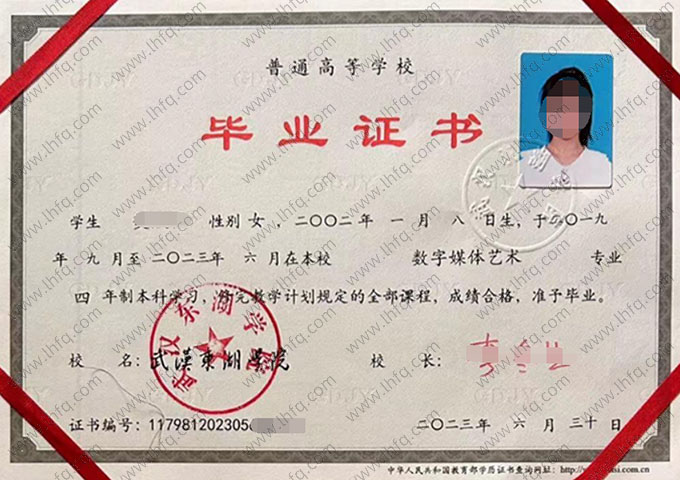 普通高等学校
毕业证书
学生 性别 女，二〇〇二年 一 月 八 日生，于二〇一九
年 九 月至 二〇二三年 六 月在本校 数字媒体艺术 专业
四 年制本科学习，修完教学计划规定的全部课程，成绩合格，准予毕业。
武汉东湖学院
校 名：武漢東湖學院 校 长：
证书编号：117981202305 二〇二三年 六 月 三十 日
中华人民共和国教育部学历证书查询网址：http://
www.lhfq.com